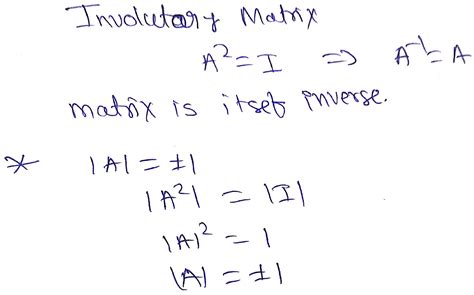 Involutary Matrix
A² = I ⇒ A⁻¹ = A
matrix is itself inverse.
* |A| = ±1
|A²| = |I|
|A|² = 1
|A| = ±1